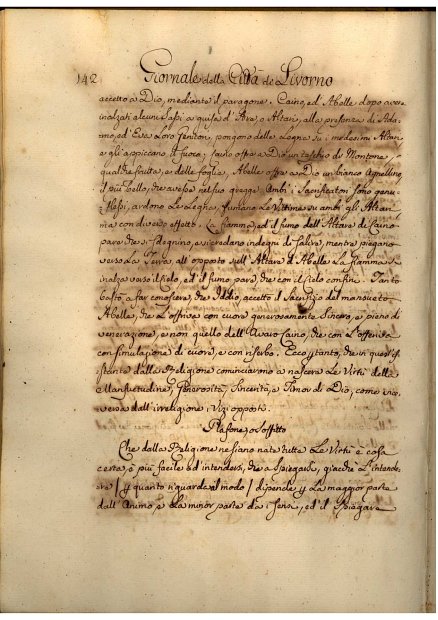 142 Giornale della Città di Livorno
accetto a Dio, mediante il paragone. Caino, ed Abelle dopo aver
inalzati alcuni sassi a guisa d'Ara, o Altari, alla presenza di Ada-
mo, ed Eva Loro Genitori, pongono delle Legna su i medesimi Altari
e gli appiccano il fuoco; Caino offre a Dio un teschio di Montone,
qualche frutta, e delle foglie, Abelle offre a Dio un bianco Agnellino,
il più bello, che avesse nel suo gregge. Ambi i Sacrificatori sono genu-
flessi, ardono le Legne, fumano le Vittime su ambi gli Altari,
ma con diverso effetto. La fiamma, ed il fumo dell'Altare di Caino
pare che si sdegnino, e si credano indegni di salire, mentre piegano
verso La Terra, all'opposto sull'Altare d'Abelle La fiamma s'
inalza verso il cielo, ed il fumo pare, che con il cielo confini. Tanto
bastò a far conoscere, che Iddio, accettò il Sacrifizio del mansueto
Abelle, che L'offriva con cuore generosamente Sincero, e pieno di
venerazione, e non quello dell'Avaro Caino, che con L'offeriva
con simulazione di cuore, e con riserbo. Ecco, tanto, che in quest'i-
stante dalla Religione cominciavano a nascere Le Virtù della
Mansuetudine, Generosità, Sincerità, e Timor di Dio, come vice
versa dall'irreligione i Vizi opposti.
Plafone, o Soffitto
Che dalla Religione ne siano nate tutte Le Virtù è cosa
certa, e più facile ad intendersi, che a Spiegarsi, giacchè L'intende-
re / p quanto riguarda al modo / dipende p La maggior parte
dall'Animo, e La minor parte da sensi, ed il Spiegare